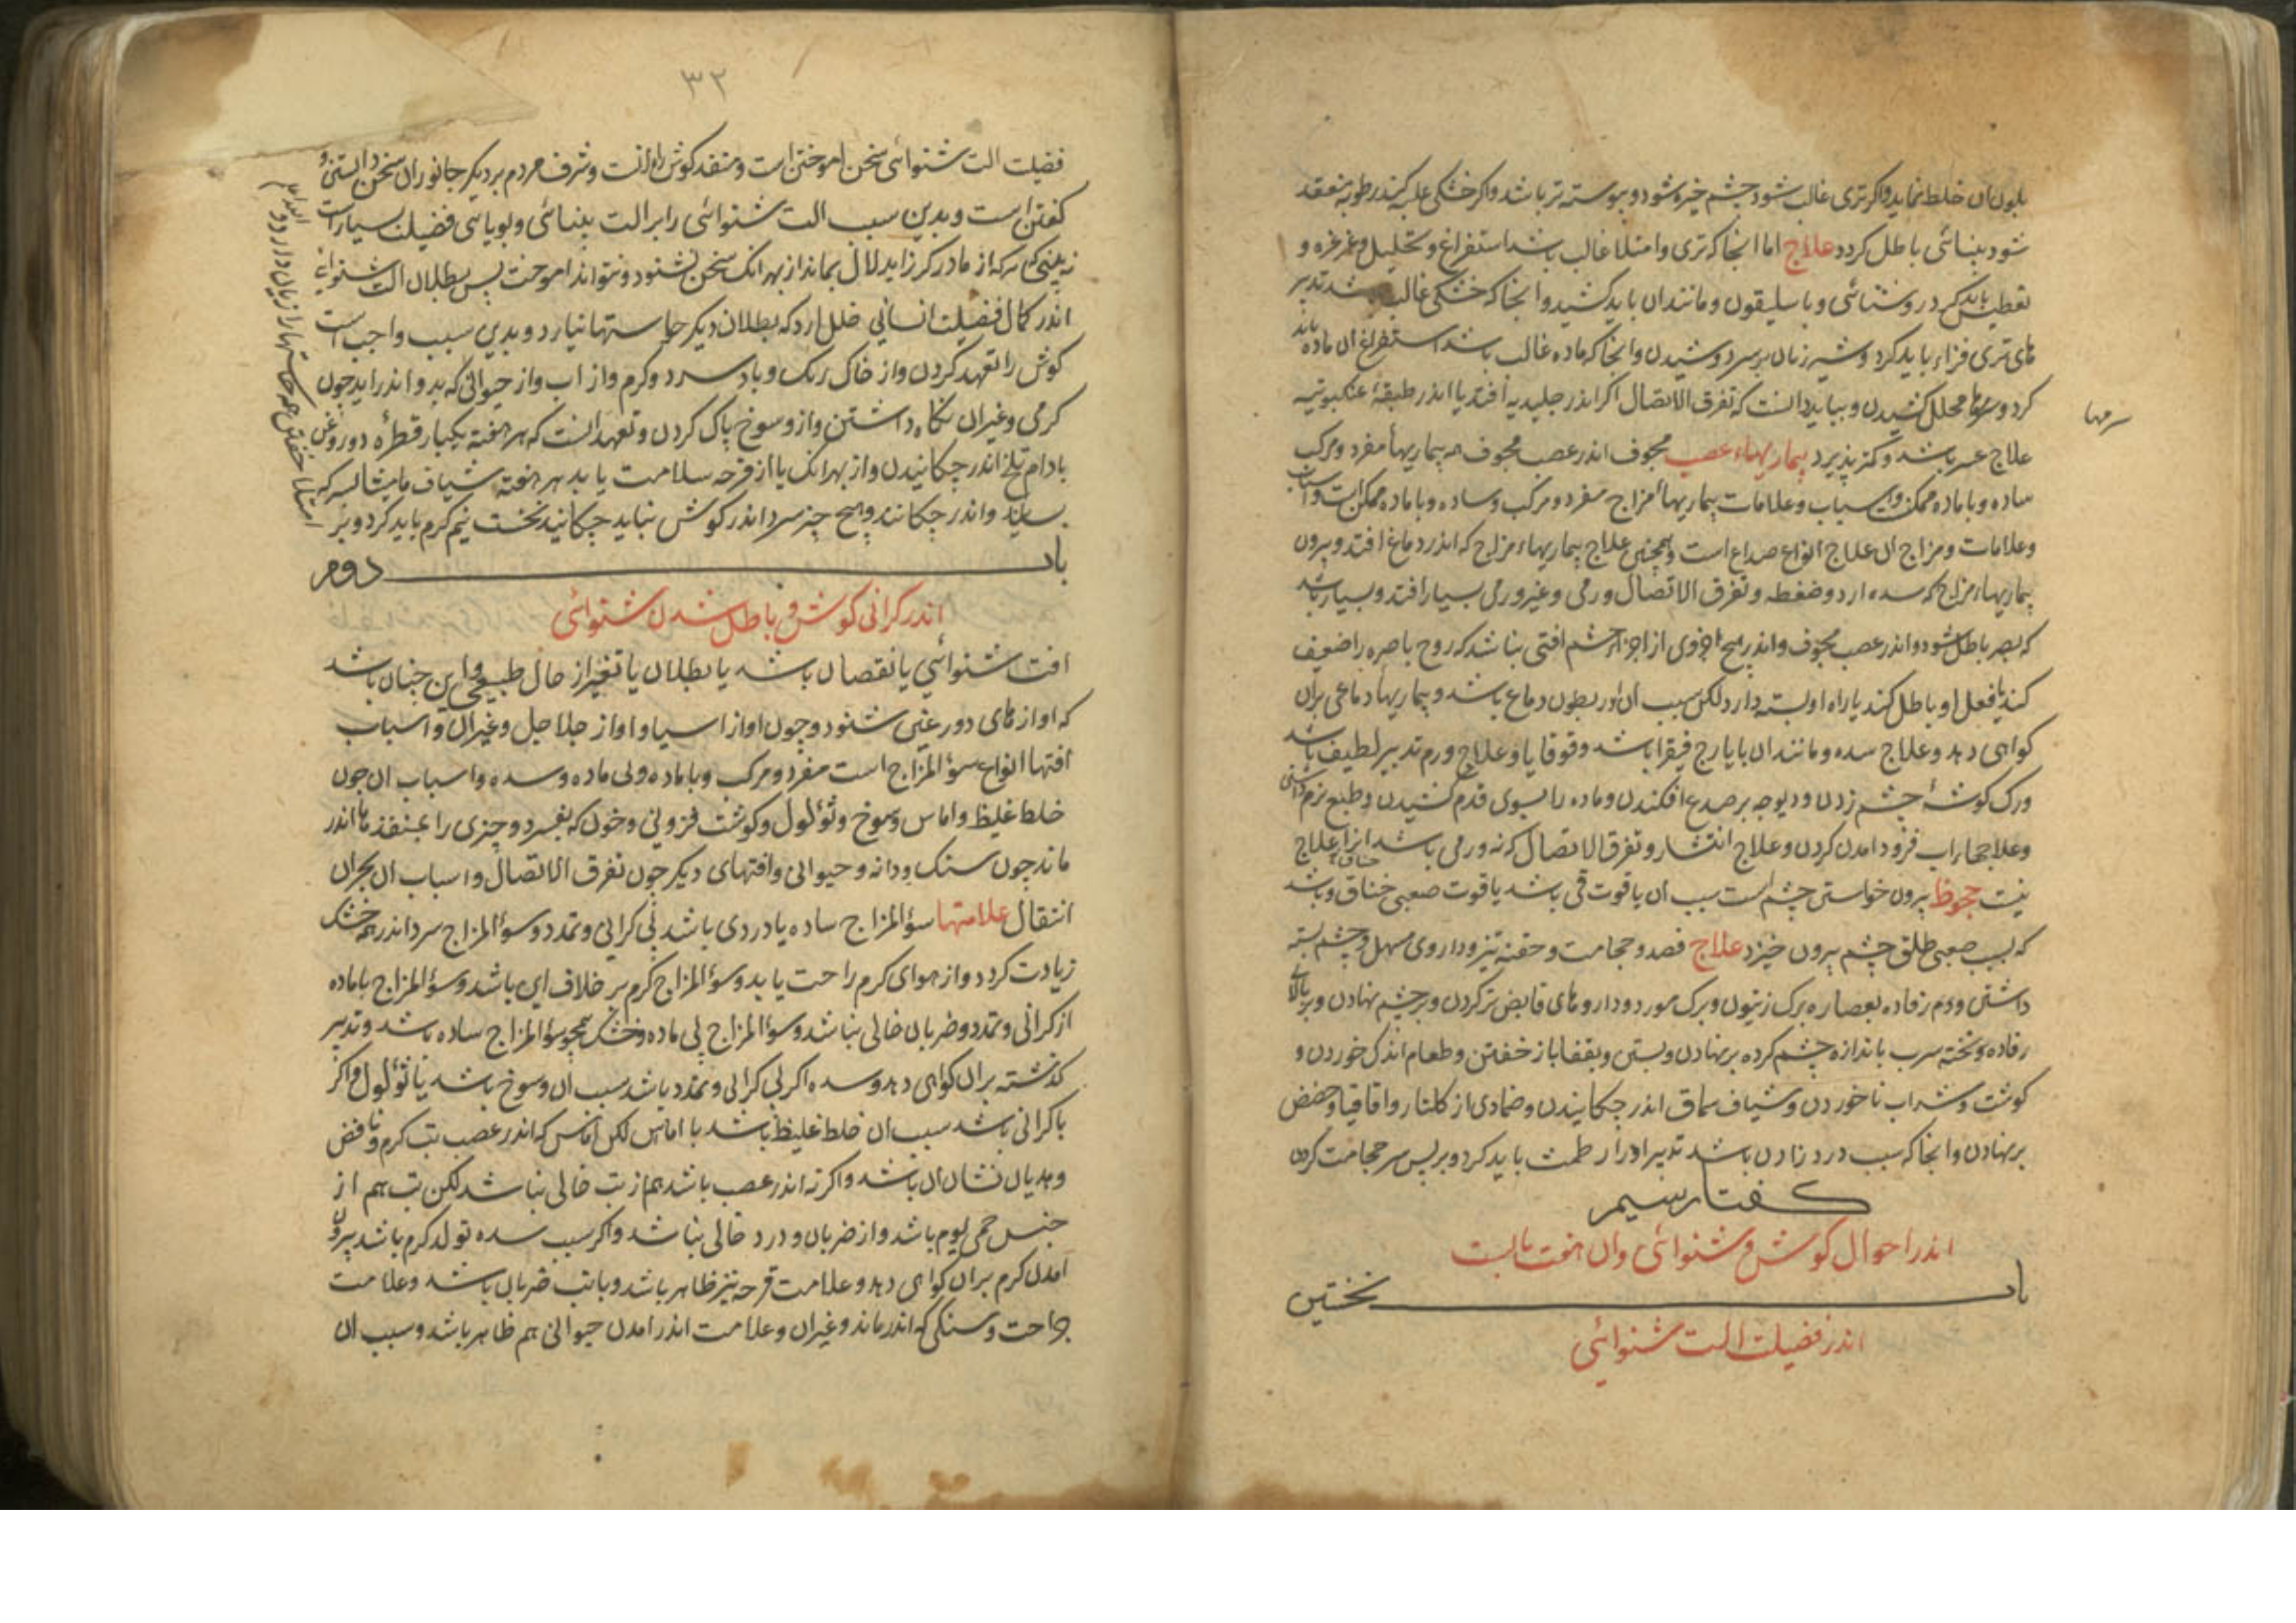 بلون ان خلط نماید واکر تری غالب شود چشم خیره شود و پیوسته تر باشد واکر خشکی غلبه کند رطوبه منعقد
شود بینائی باطل کردد علاج اما انجا که تری وامتلا غالب باشد استفراغ و تحلیل و غرغره و
تعطیس باید کرد و روشنائی و باسلیقون و مانند ان باید کشید وانجا که خشکی غالب باشد تدبیر
های تری فزاء باید کرد و شیر زنان بر سر دوشیدن وانجا که ماده غالب باشد استفراغ ان ماده باید
کرد و سرمها محلل کشیدن و بباید دانست که تفرق الاتصال اکر اندر جلیدیه افتد یا اندر طبقهٔ عنکبوتیه
سرمها
علاج عسر باشد و کمتر پذیرد بیماریهاء عصب مجوف اندر عصب مجوف همه بیماریهاء مفرد و مرکب
ساده و با ماده ممکن و اسباب و علامات بیماریهاء مزاج مفرد و مرکب و ساده و با ماده ممکن است و اسباب
وعلامات و مزاج ان علاج انواع صداع است و همچنین علاج بیماریهاء مزاج که اندر دماغ افتد و بیرون
بیماریهاء مزاج که سده ارد و ضغطه و تفرق الاتصال ورمی و غیر ورمی بسیار افتد و بسیار باشد
که بصر باطل شود و اندر عصب مجوف و اندر هیچ جزوی از اجزاء چشم افتی نباشد که روح باصره را ضعیف
کند یا فعل او باطل کند یا راه او بسته دارد لکن سبب ان اندر بطون دماغ باشد و بیماریهاء دماغی بران
کواهی دهد و علاج سده و مانند ان بایارج فیقرا باشد و قوقایا و علاج ورم تدبیر لطیف باشد
ورک کوشهٔ چشم زدن و دیوجه بر صدغ افکندن و ماده را بسوی قدم کشیدن و طبع نرم داشتن
وعلاجهاء اب فرود امدن کردن و علاج انتشار و تفرق الاتصال که نه ورمی باشد انرا علاج
نیست جحوظ بیرون خواستن چشم است سبب ان یا قوت قی باشد یا قوت صعبی خناق و باشد
که بسبب صعبی طلق چشم بیرون خیزد علاج فصد و حجامت و حقنه تیز و داروی مسهل و چشم بسته
داشتن و دم رفاده بعصاره برک زیتون و برک مورد و داروهای قابض تر کردن و بر چشم نهادن و بر بالای
رفاده و تخته سرب باندازه چشم کرده بر نهادن و بستن و بقفا باز خفتن و طعام اندک خوردن و
کوشت و شراب ناخوردن و شیاف سماق اندر چکانیدن و ضمادی از کلنار و اقاقیا و حضض
بر نهادن وانجا که سبب درد زادن باشد تدبیر ادرار طمث باید کرد و بر پس سر حجامت کردن
کفتار سیم
اندر احوال کوش و شنوائی وان هفت بابست
باب نخستین
اندر فضیلت الت شنوائی
۳۲
فضیلت الت شنوائی سخن اموختن است و منفذ کوش راه انست و شرف مردم بر دیکر جانوران سخن دانستن و
کفتن است و بدین سبب الت شنوائی را بر الت بینائی و بویائی فضیلت بسیار است
نه بینی که هر که از مادر کر زاید لال بماند از بهر انک سخن نشنود و نتواند اموخت پس بطلان الت شنوائی
اندر کمال فضیلت انسانی خلل ارد که بطلان دیکر حاستها نیارد و بدین سبب واجب است
کوش را تعهد کردن و از خاک و ریک و باد سرد و کرم و از اب و از حیوانی که بدو اندر اید چون
کرمی و غیر ان نکاه داشتن و از وسوخ پاک کردن و تعهد انست که هر هفته یکبار قطرهٔ دو روغن
بادام تلخ اندر چکانیدن و از بهر انک یا از قرحه سلامت یابد هر هفته شیاف مامیثا بسرکه
بسایند و اندر چکانند و هیچ چیز سرد اندر کوش نباید چکانید نخست نیم کرم باید کرد و بر
امتلا خفتن همه حاستها را زیان دارد
باب دوم
اندر کرانی کوش و باطل شدن شنوائی
افت شنوائی یا نقصان باشد یا بطلان یا تغیر از حال طبیعی و این چنان باشد
که اوازهای دور غنی شنود و چون اواز اسیا و اواز جلاجل و غیر ان و اسباب
افتها انواع سؤ المزاج است مفرد و مرکب و با ماده و بی ماده و سده و اسباب ان چون
خلط غلیظ و اماس و وسوخ و ثؤلول و کوشت فزونی و خون که بفسرد و چیزی را عنفد ها اندر
ماند چون سنک و دانه و حیوانی و افتهای دیکر چون تفرق الاتصال و اسباب ان بحران
انتقال علامتها سؤ المزاج ساده یا دردی باشد بی کرانی و تمدد و سؤ المزاج سرد اندر هوا خشک
زیادت کردد و از هوای کرم راحت یابد و سؤ المزاج کرم بر خلاف این باشد و سؤ المزاج با ماده
از کرانی و تمدد و ضربان خالی نباشد و سؤ المزاج بی ماده و خشک همچو سؤ المزاج ساده باشد و تدبیر
کذشته بران کواهی دهد و سده اکر بی کرانی و تمدد باشد سبب ان وسوخ باشد یا ثؤلول و اکر
با کرانی باشد سبب ان خلط غلیظ باشد یا اماس لکن اماس که اندر عصب تب کرم و نافض
و هدیان نشان ان باشد و اکر نه اندر عصب باشد هم از تب خالی نباشد لکن تب هم از
جنس حمی یوم باشد و از ضربان و درد خالی نباشد و اکر سبب سده تولد کرم باشد بیرون
امدن کرم بران کواهی دهد و علامت قرحه نیز ظاهر باشد و با تب ضربان باشد و علامت
جراحت و سنکی که اندر ماند و غیر ان و علامت اندر امدن حیوانی هم ظاهر باشد و سبب ان